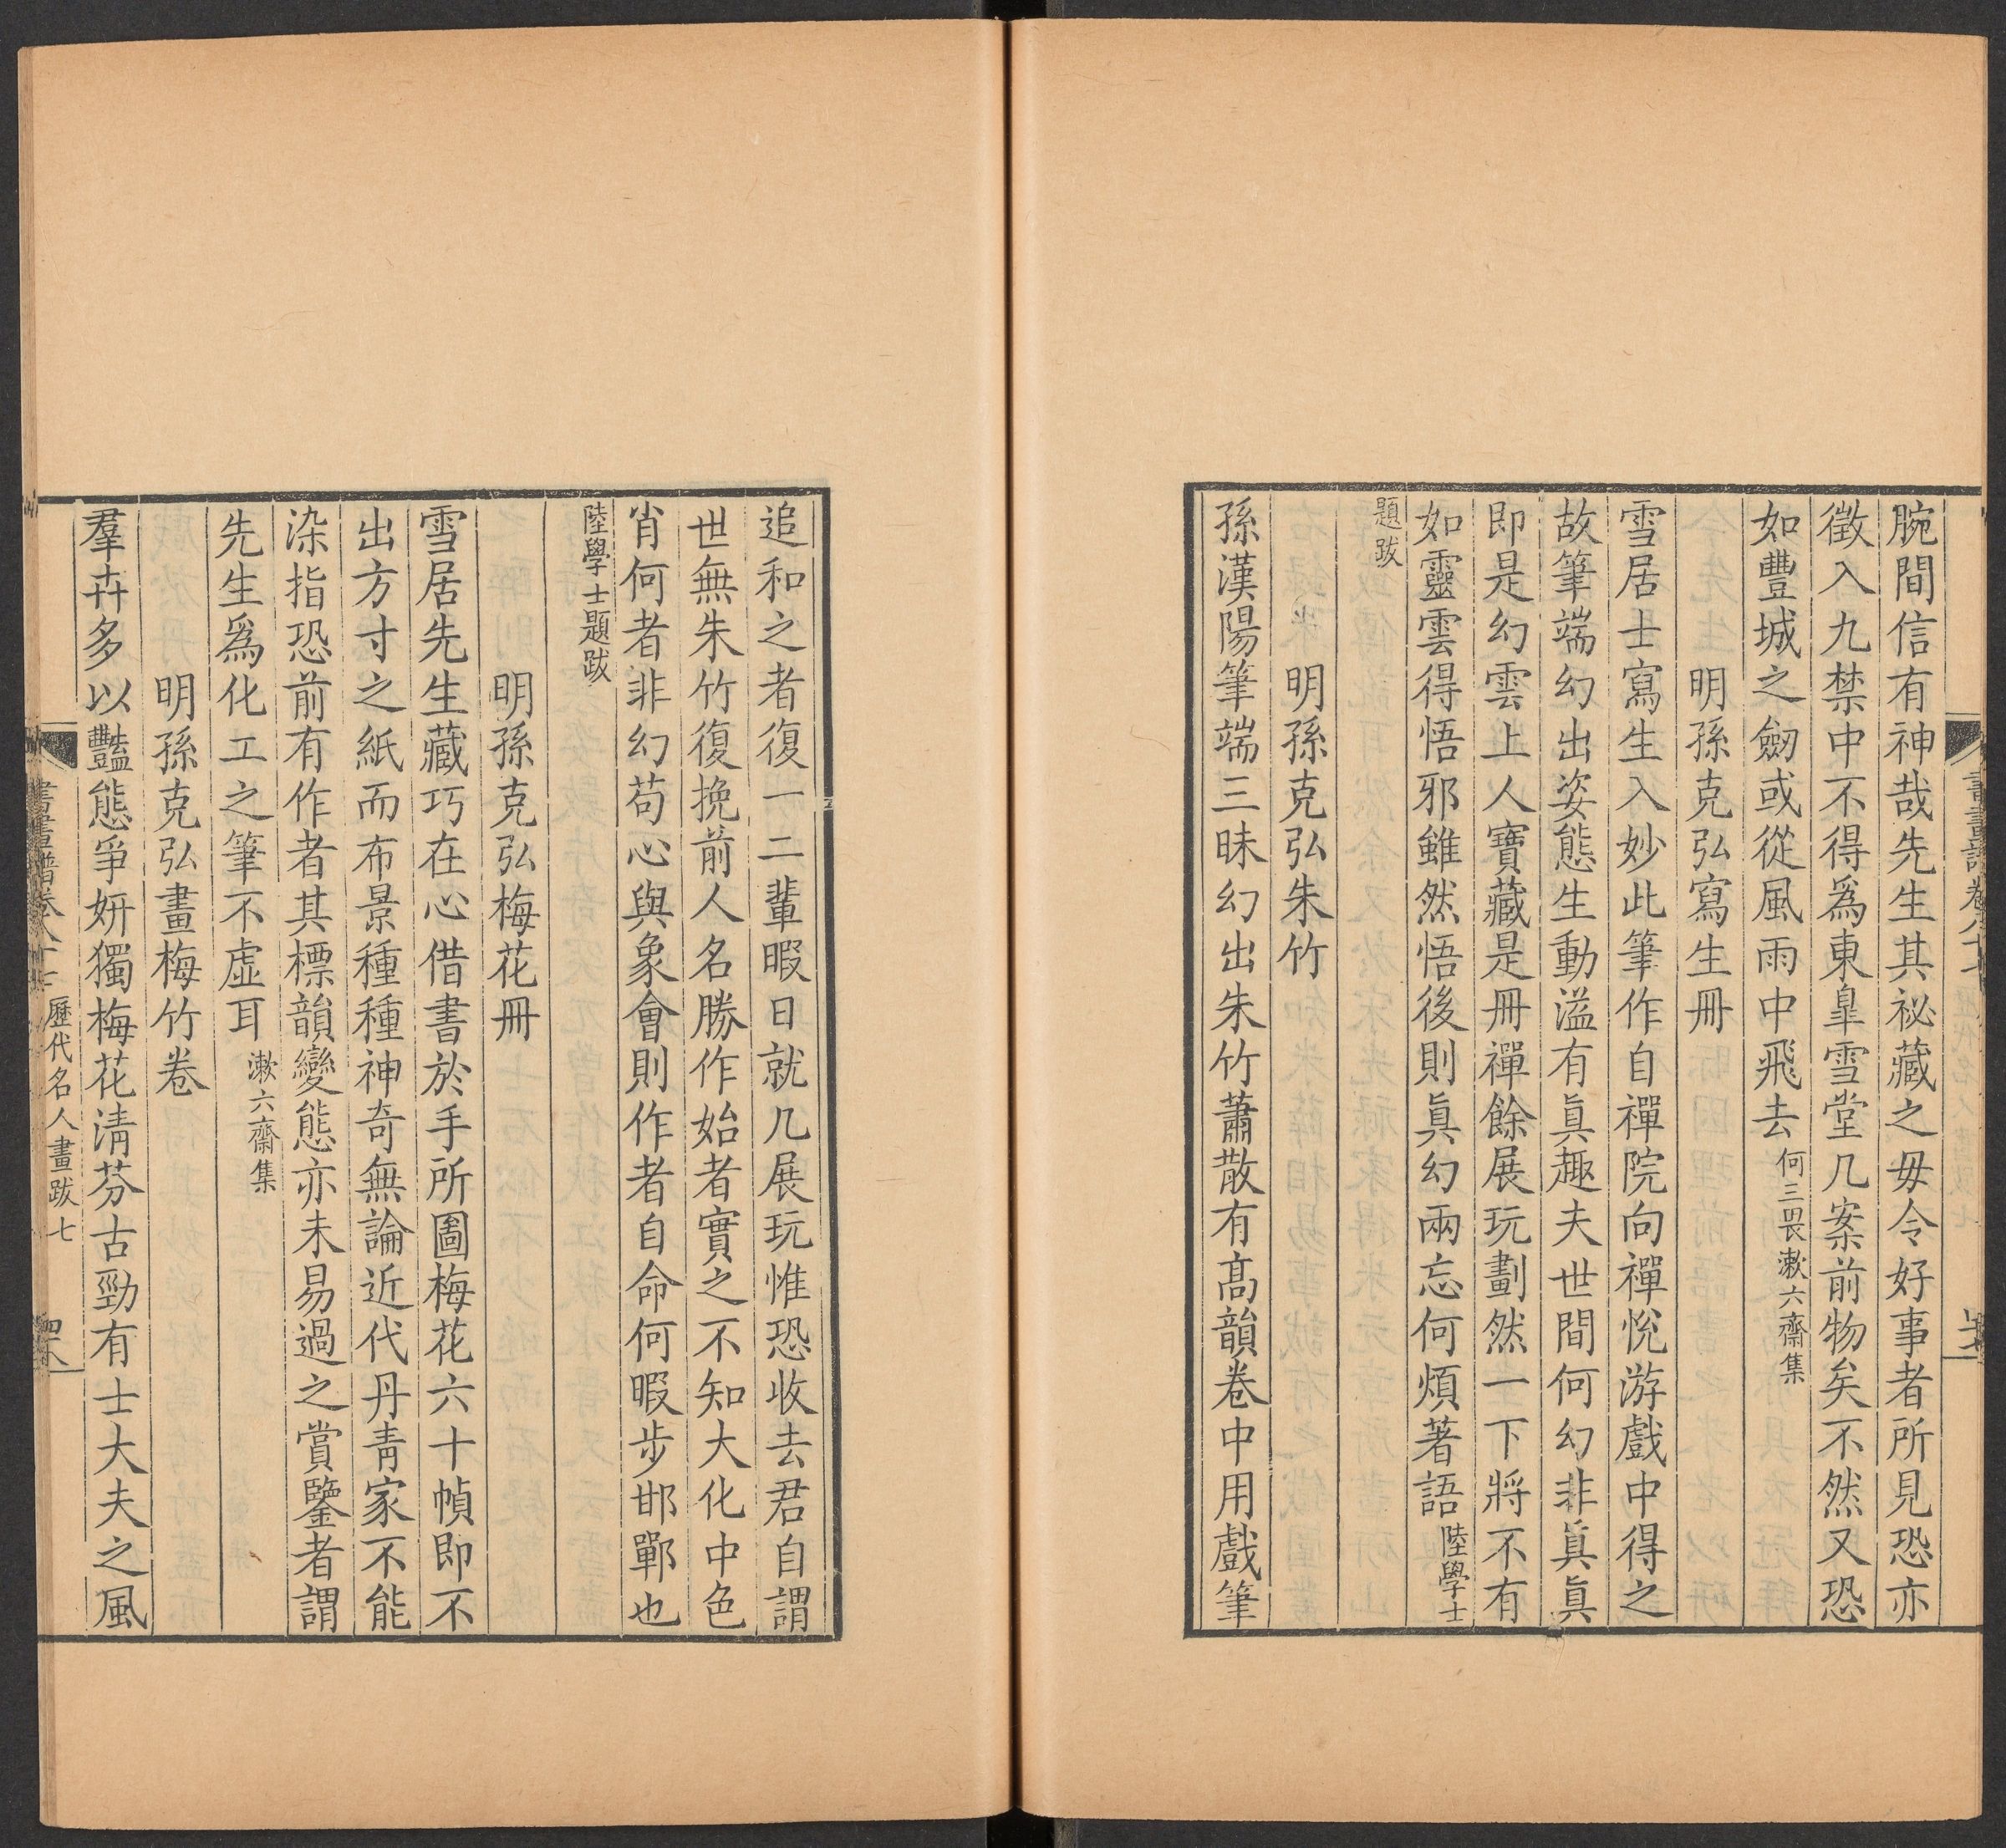 腕間信有神哉先生其祕藏之毋令好事者所見恐亦
徵入九禁中不得爲東臯雪堂几案前物矣不然又恐
如豐城之劒或從風雨中飛去何三畏漱六齋集
明孫克弘寫生冊
雪居士寫生入妙此筆作自禪院向禪悅游戲中得之
故筆端幻出姿態生動溢有眞趣夫世間何幻非眞眞
即是幻雲上人寶藏是冊禪餘展玩劃然一下將不有
如靈雲得悟邪雖然悟後則眞幻兩忘何煩著語陸學士
題跋
明孫克弘朱竹
孫漢陽筆端三昧幻出朱竹蕭散有高韻卷中用戲筆
追和之者復一二輩暇日就几展玩惟恐收去君自謂
世無朱竹復挽前人名勝作始者實之不知大化中色
肖何者非幻苟心與象會則作者自命何暇步邯鄲也
陸學士題跋
明孫克弘梅花冊
雪居先生藏巧在心借書於手所圖梅花六十幀即不
出方寸之紙而布景種種神奇無論近代丹青家不能
染指恐前有作者其標韻變態亦未易過之賞鑒者謂
先生爲化工之筆不虛耳漱六齋集
明孫克弘畫梅竹卷
羣卉多以豔態爭妍獨梅花清芬古勁有士大夫之風
書畫譜卷八十七 歷代名人畫跋七